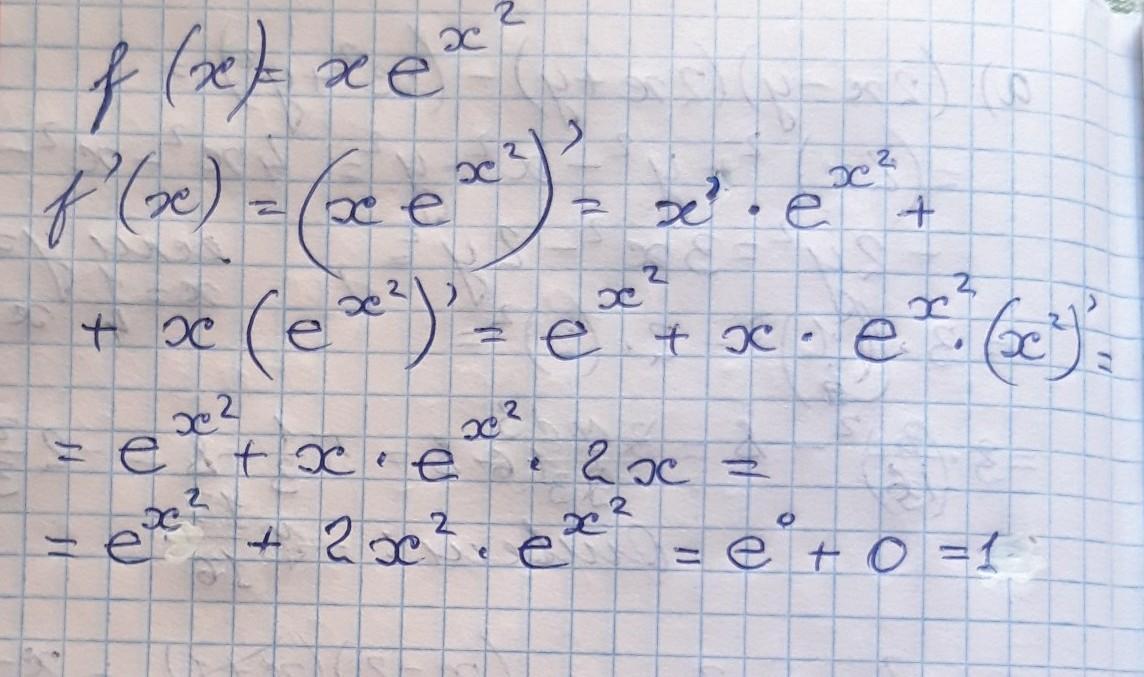 f(x) = x e^{x^2}
f'(x) = (x e^{x^2})' = x' · e^{x^2} +
+ x (e^{x^2})' = e^{x^2} + x · e^{x^2} · (x^2)' =
= e^{x^2} + x · e^{x^2} · 2x =
= e^{x^2} + 2x^2 · e^{x^2} = e^0 + 0 = 1